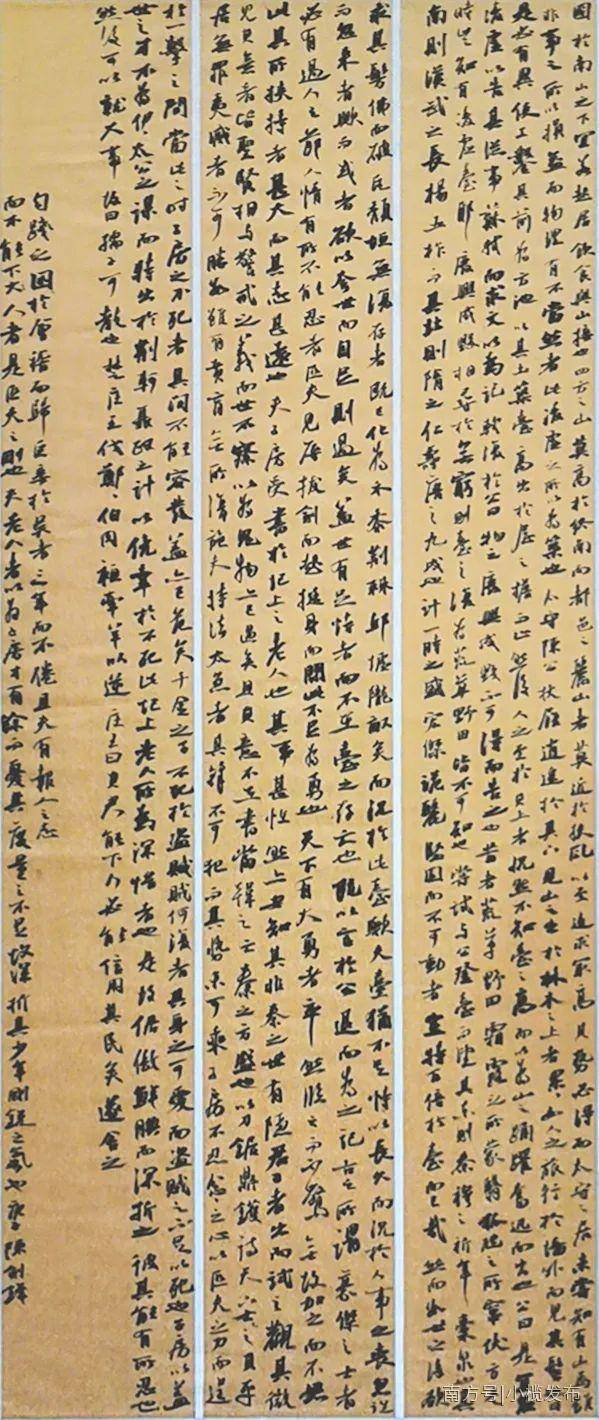 国於南山之下宜若起居飲食與山接也四方之山莫高於终南而都邑之麗山者莫近於扶風以至近求最高其勢必得而太守之居未嘗知有山焉雖
非事之所以損益而物理有不當然者此凌虚之所以為築也太守陳公杖履逍遥於其下見山之出於林木之上者累累如人之旅行於墻外而見其髻也曰
是必有異使工鑿其前為方池以其土築臺高出於屋之檐而止然後人之至於其上者恍然不知臺之高而以為山之踊躍奮迅而出也公曰是宜名
凌虚以告其從事蘇軾而求文以為記軾復於公曰物之廢興成毀不可得而知也昔者荒草野田霜露之所蒙翳狐虺之所竄伏方是
時豈知有凌虚臺耶廢興成毀相尋於無窮則臺之復為荒草野田皆不可知也嘗試與公登臺而望其東則秦穆之祈年橐泉也其
南則漢武之長楊五柞而其北則隋之仁壽唐之九成也計一時之盛宏傑詭麗堅固而不可動者豈特百倍於臺而已哉然而數世之後欲
求其髣佛而破瓦頹垣無復存者既已化為禾黍荆棘邱墟隴畝矣而況於此臺歟夫臺猶不足恃以長久而況於人事之喪忽
而忽来者歟而或者欲以夸世而自足則過矣蓋世有足恃者而不在臺之存亡也既以言於公退而為之記古之所謂豪傑之士者
必有過人之節人情有所不能忍者匹夫見辱拔劍而起挺身而鬥此不足為勇也天下有大勇者卒然臨之而不驚無故加之而不怒
此其所挾持者甚大而其志甚遠也夫子房受書於圯上之老人也其事甚怪然亦安知其非秦之世有隱君子者出而試之觀其微
見其意者皆聖賢相與警戒之義而世不察以為鬼物亦已過矣且其意不在書當韓之亡秦之方盛也以刀鋸鼎鑊待天下之士其平
居無罪夷滅者不可勝數雖有賁育無所復施夫持法太急者其鋒不可犯而其勢未可乘子房不忍忿之心以匹夫之力而逞
於一擊之間當此之時子房之不死者其间不能容髮蓋亦已危矣千金之子不死於盜賊何者其身之可愛而盜賊之不足以死也子房以蓋
世之才不為伊尹太公之謀而特出於荆軻聶政之計以僥幸於不死此圯上老人所為深惜者也是故倨傲鮮腆而深折之彼其能有所忍也
然後可以就大事故曰孺子可教也楚莊王伐鄭鄭伯肉袒牽羊以逆莊王曰其君能下人必能信用其民矣遂舍之
勾踐之困於會稽而歸臣妾於吳者三年而不倦且夫有報人之志
而不能下人者是匹夫之剛也夫老人者以為子房才有餘而憂其度量之不足故深折其少年剛銳之氣也
南方号|小榄发布